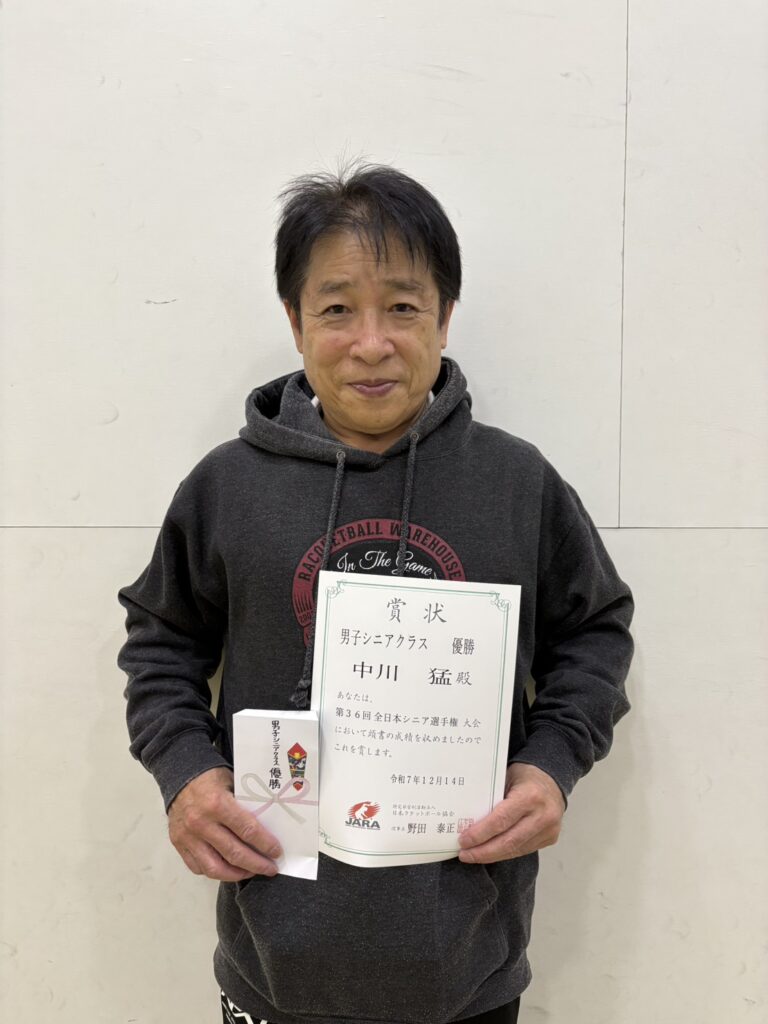 RACQUETBALL WAREHOUSE
In The Game
賞状
男子シニアクラス 優勝
中川 猛 殿
あなたは、
第36回 全日本シニア選手権 大会
において頭書の成績を収めましたので
これを賞します。
令和7年12月14日
特定非営利活動法人
日本ラケットボール協会
理事長 野田 泰正
JARA
男子シニアクラス 優勝